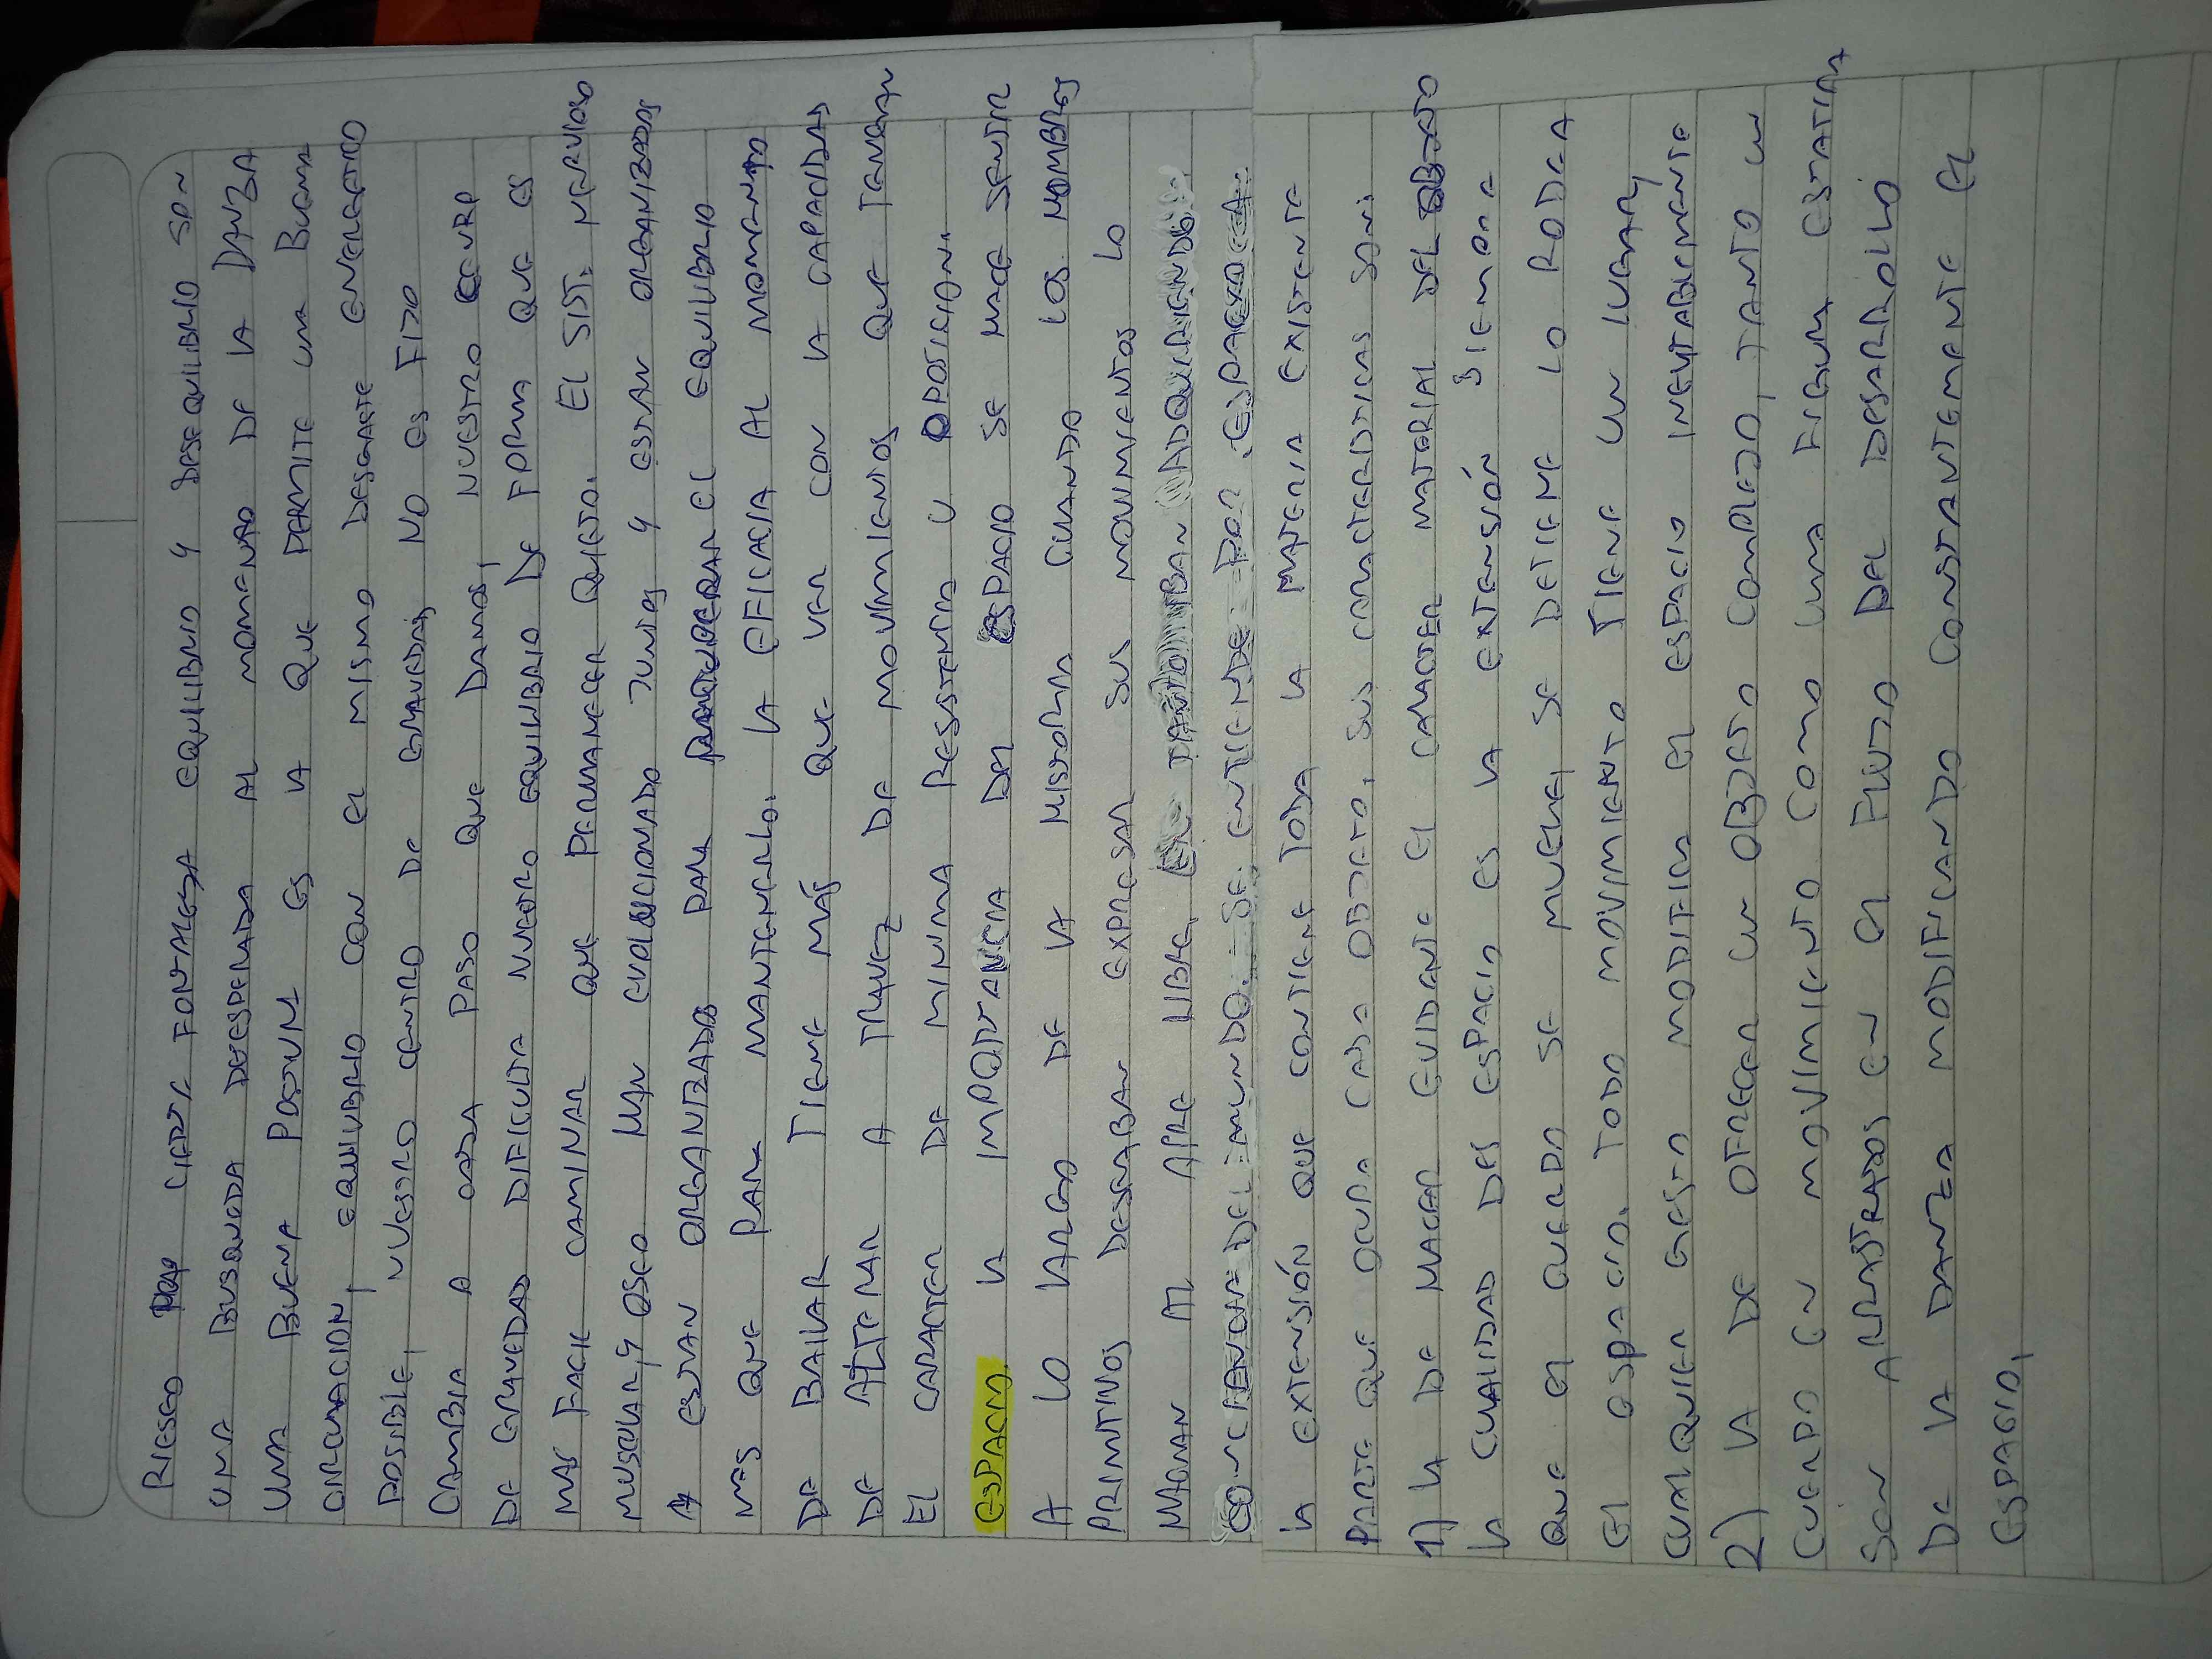 RIESGO POR CIERTA FORTALEZA EQUILIBRIO Y DESEQUILIBRIO SON
UNA BUSQUEDA DESESPERADA AL MOMENTO DE LA DANZA
UNA BUENA POSTURA ES LA QUE PERMITE UNA BUENA
CIRCULACION, EQUILIBRIO CON EL MISMO DESGASTE ENERGETICO
POSIBLE, NUESTRO CENTRO DE GRAVEDAD, NO ES FIJO
CAMBIA A CADA PASO QUE DAMOS, NUESTRO CENTRO
DE GRAVEDAD DIFICULTA NUESTRO EQUILIBRIO DE FORMA QUE ES
MAS FACIL CAMINAR QUE PERMANECER QUIETO. EL SIST. NERVIOSO
MUSCULAR, Y OSEO HAN EVOLUCIONADO JUNTOS Y ESTAN ORGANIZADOS
ESTAN ORGANIZADOS PARA RECUPERAR EL EQUILIBRIO
MES QUE PARA MANTENERLO. LA EFICACIA AL MOMENTO
DE BAILAR TIENE MÁS QUE VER CON LA CAPACIDAD
DE ALTERNAR A TRAVEZ DE MOVIMIENTOS QUE TENGAN
EL CARACTER DE MINIMA RESISTENCIA U OPOSICION.
ESPACIO. LA IMPORTANCIA DEL ESPACIO SE HACE SENTIR
A LO LARGO DE LA HISTORIA CUANDO LOS HOMBRES
PRIMITIVOS DESEABAN EXPRESAR SUS MOVIMIENTOS LO
HACIAN AL AIRE LIBRE, ADQUIRIENDO
CONCIENCIA DEL MUNDO. SE ENTIENDE POR ESPACIO A
LA EXTENSIÓN QUE CONTIENE TODA LA MATERIA EXISTENTE
PARTE QUE OCUPA CADA OBJETO, SUS CARACTERISTICAS SON:
1) LA DE HACER EVIDENTE EL CARACTER MATERIAL DEL OBJETO
LA CUALIDAD DEL ESPACIO ES LA EXTENSIÓN SIEMPRE
QUE EL CUERPO SE MUEVE, SE DETIENE LO RODEA
EL ESPACIO. TODO MOVIMIENTO TIENE UN LUGAR Y
CUALQUIER GESTO MODIFICA EL ESPACIO INEVITABLEMENTE
2) LA DE OFRECER UN OBJETO COMPLEJO, TANTO UN
CUERPO EN MOVIMIENTO COMO UNA FIGURA ESTATICA
SON ARRASTRADOS EN EL FLUJO DEL DESARROLLO
DE LA DANZA MODIFICANDO CONSTANTEMENTE EL
ESPACIO,